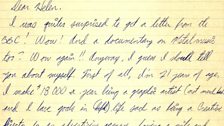 Dear Helen.
I was quite surprised to get a letter from the
BBC! Wow! And a documentary on Metal music
too - Wow again!! Anyway, I guess I should tell
you about myself. First of all, I'm 21 years of age,
I make $18 000 a year being a graphic artist (and must
and I have goals in life such as being a Creative